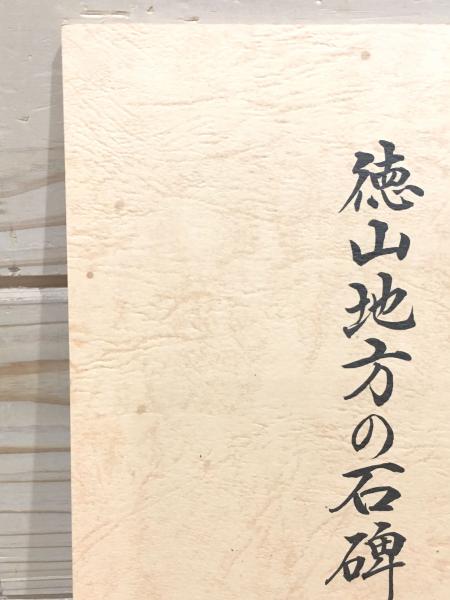 徳山地方の石碑